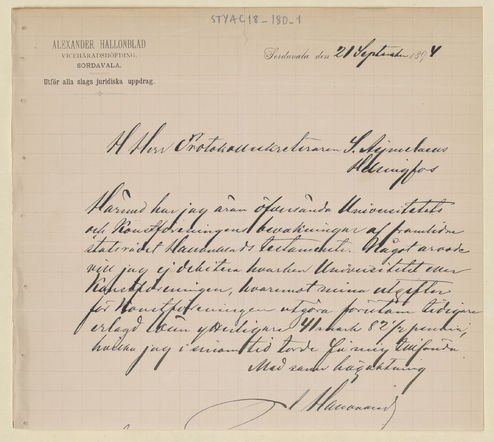 STYAC18-180-1
ALEXANDER HALLONBLAD
VICEHÄRADSHÖFDING.
SORDAVALA.
Utför alla slags juridiska uppdrag.
Sordavala den 21 September 1894
H Herr Protokollsekreteraren S. Nymalm
Helsingfors
Härmed har jag äran öfversända Universitetets
och Konstföreningens bevakningar af framlidne
statsrådet Hallonblads testamente. Något arvode
vill jag ej debitera hvarken Universitetet eller
Konstföreningen, hvaremot mina utgifter
för Konstföreningen utgöra förutom tidigare
erlagd lösen ytterligare 41 mark 87 1/2 penni,
hvilka jag i sinom tid torde få mig tillsända.
Med sann högaktning
A Hallonblad